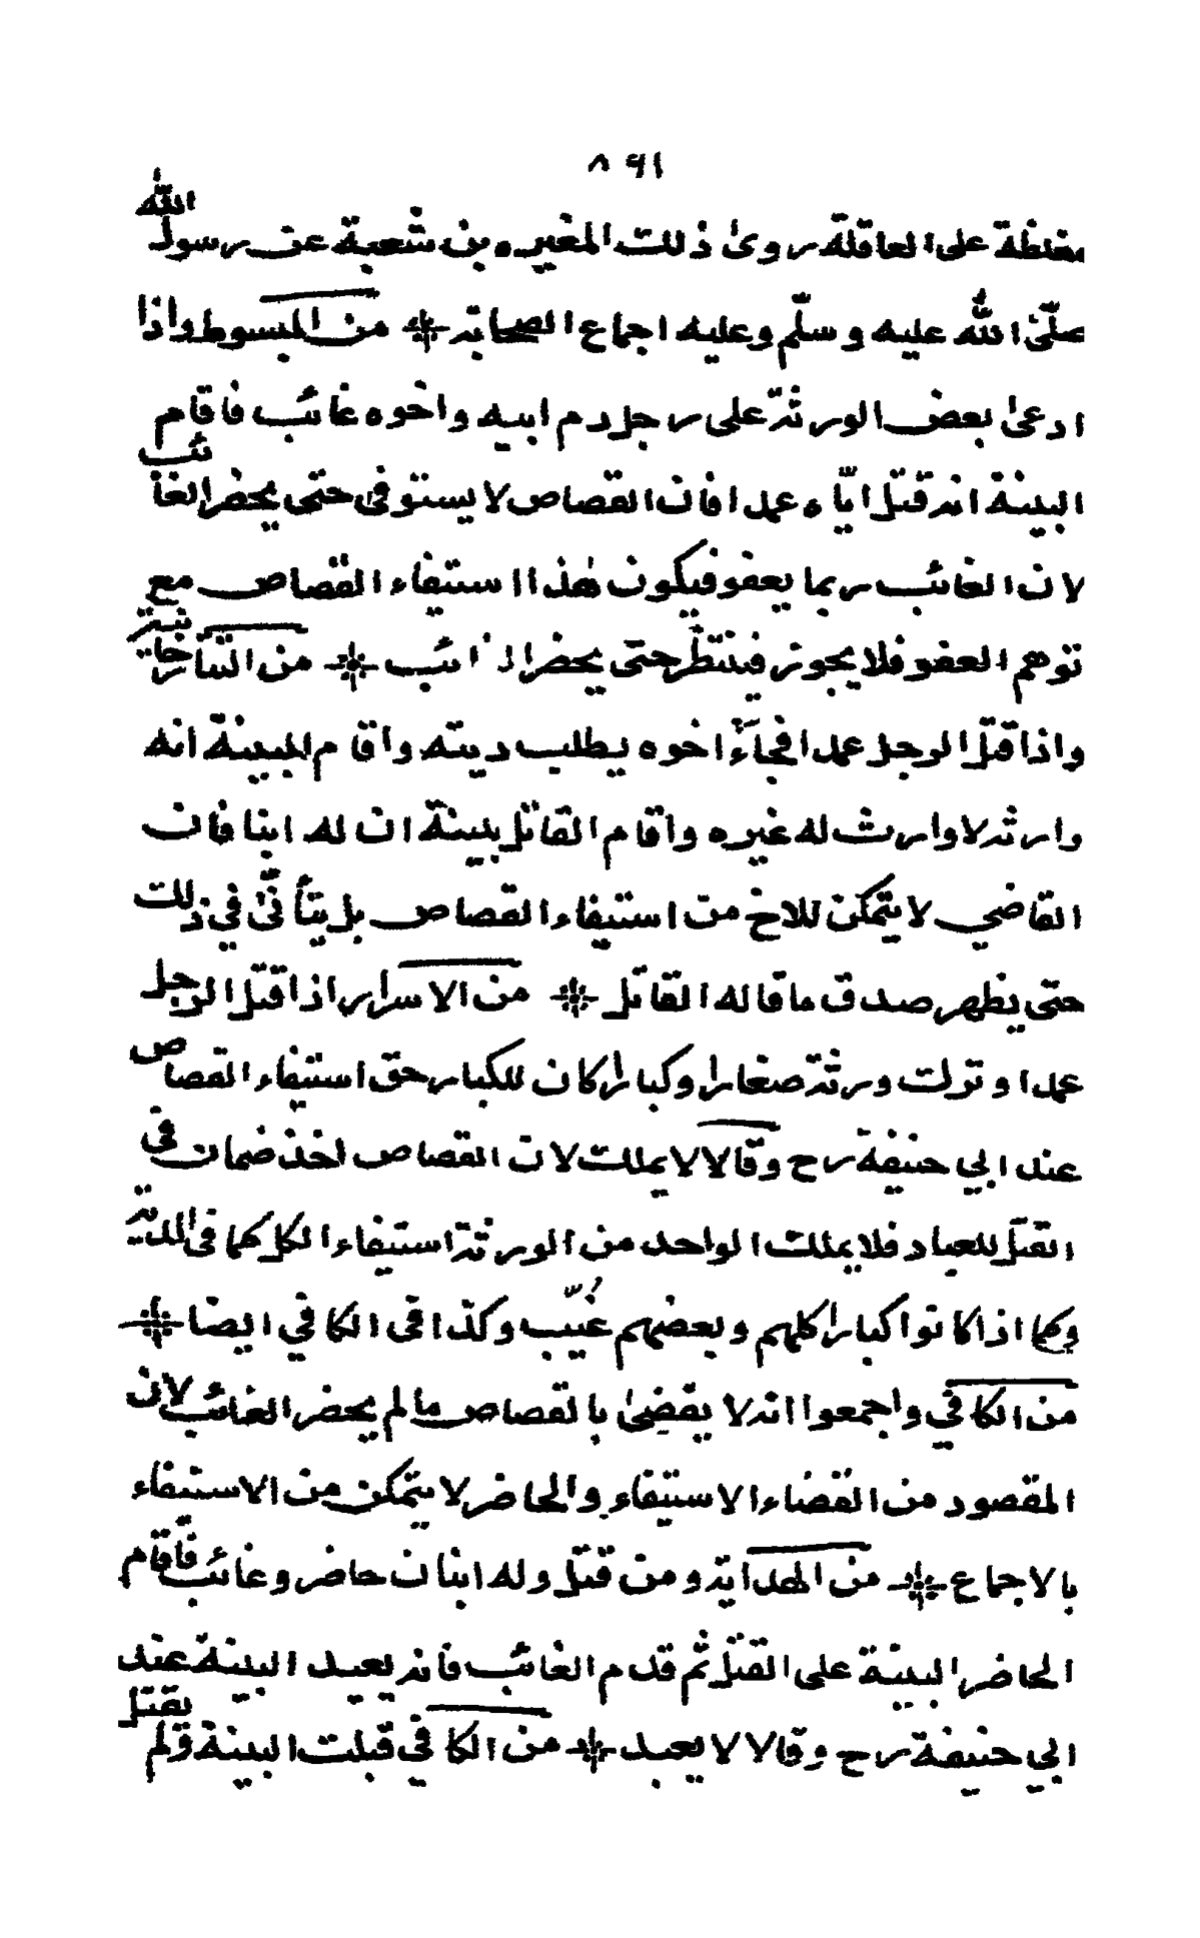 ٨٩١
مغلظة على العاقلة روىٰ ذلك المغيره بن شعبة عن رسول الله
صلّى الله عليه وسلّم وعليه اجماع الصحابة من المبسوط واذا
ادعىٰ بعض الورثة على رجل دم ابيه واخوه غائب فاقام
البينة انه قتل ايّاه عمدا فان القصاص لا يستوفى حتى يحضر الغائب
لان الغائب ربما يعفو فيكون هٰذا استيفاء القصاص مع
توهم العفو فلا يجوز فينتظر حتى يحضر الغائب من التتارخانية
واذا قتل الرجل عمدا فجاءَ اخوه يطلب ديته واقام البينة انه
وارثه لا وارث له غيره واقام القاتل بينة ان له ابنا فان
القاضي لا يتمكن للاخ من استيفاء القصاص بل يتأنّى في ذلك
حتى يظهر صدق ما قاله القاتل من الاسرار اذا قتل الرجل
عمدا وترك ورثة صغارا وكبارا كان للكبار حق استيفاء القصاص
عند ابي حنيفة رح وقالا لا يملك لان القصاص اخذ ضمان فى
القتل للعباد فلا يملك الواحد من الورثة استيفاء الكل كما فى الدية
وكما اذا كانوا كبارا كلهم وبعضهم غُيّب وكذا فى الكافي ايضا
من الكافي واجمعوا انه لا يقضىٰ بالقصاص ما لم يحضر الغائب لان
المقصود من القضاء الاستيفاء والحاضر لا يتمكن من الاستيفاء
بالاجماع من الهداية ومن قتل وله ابنان حاضر وغائب فاقام
الحاضر البينة على القتل ثم قدم الغائب فانه يعيد البينة عند
ابي حنيفة رح وقالا لا يعيد من الكافي قبلت البينة ولم يقتل